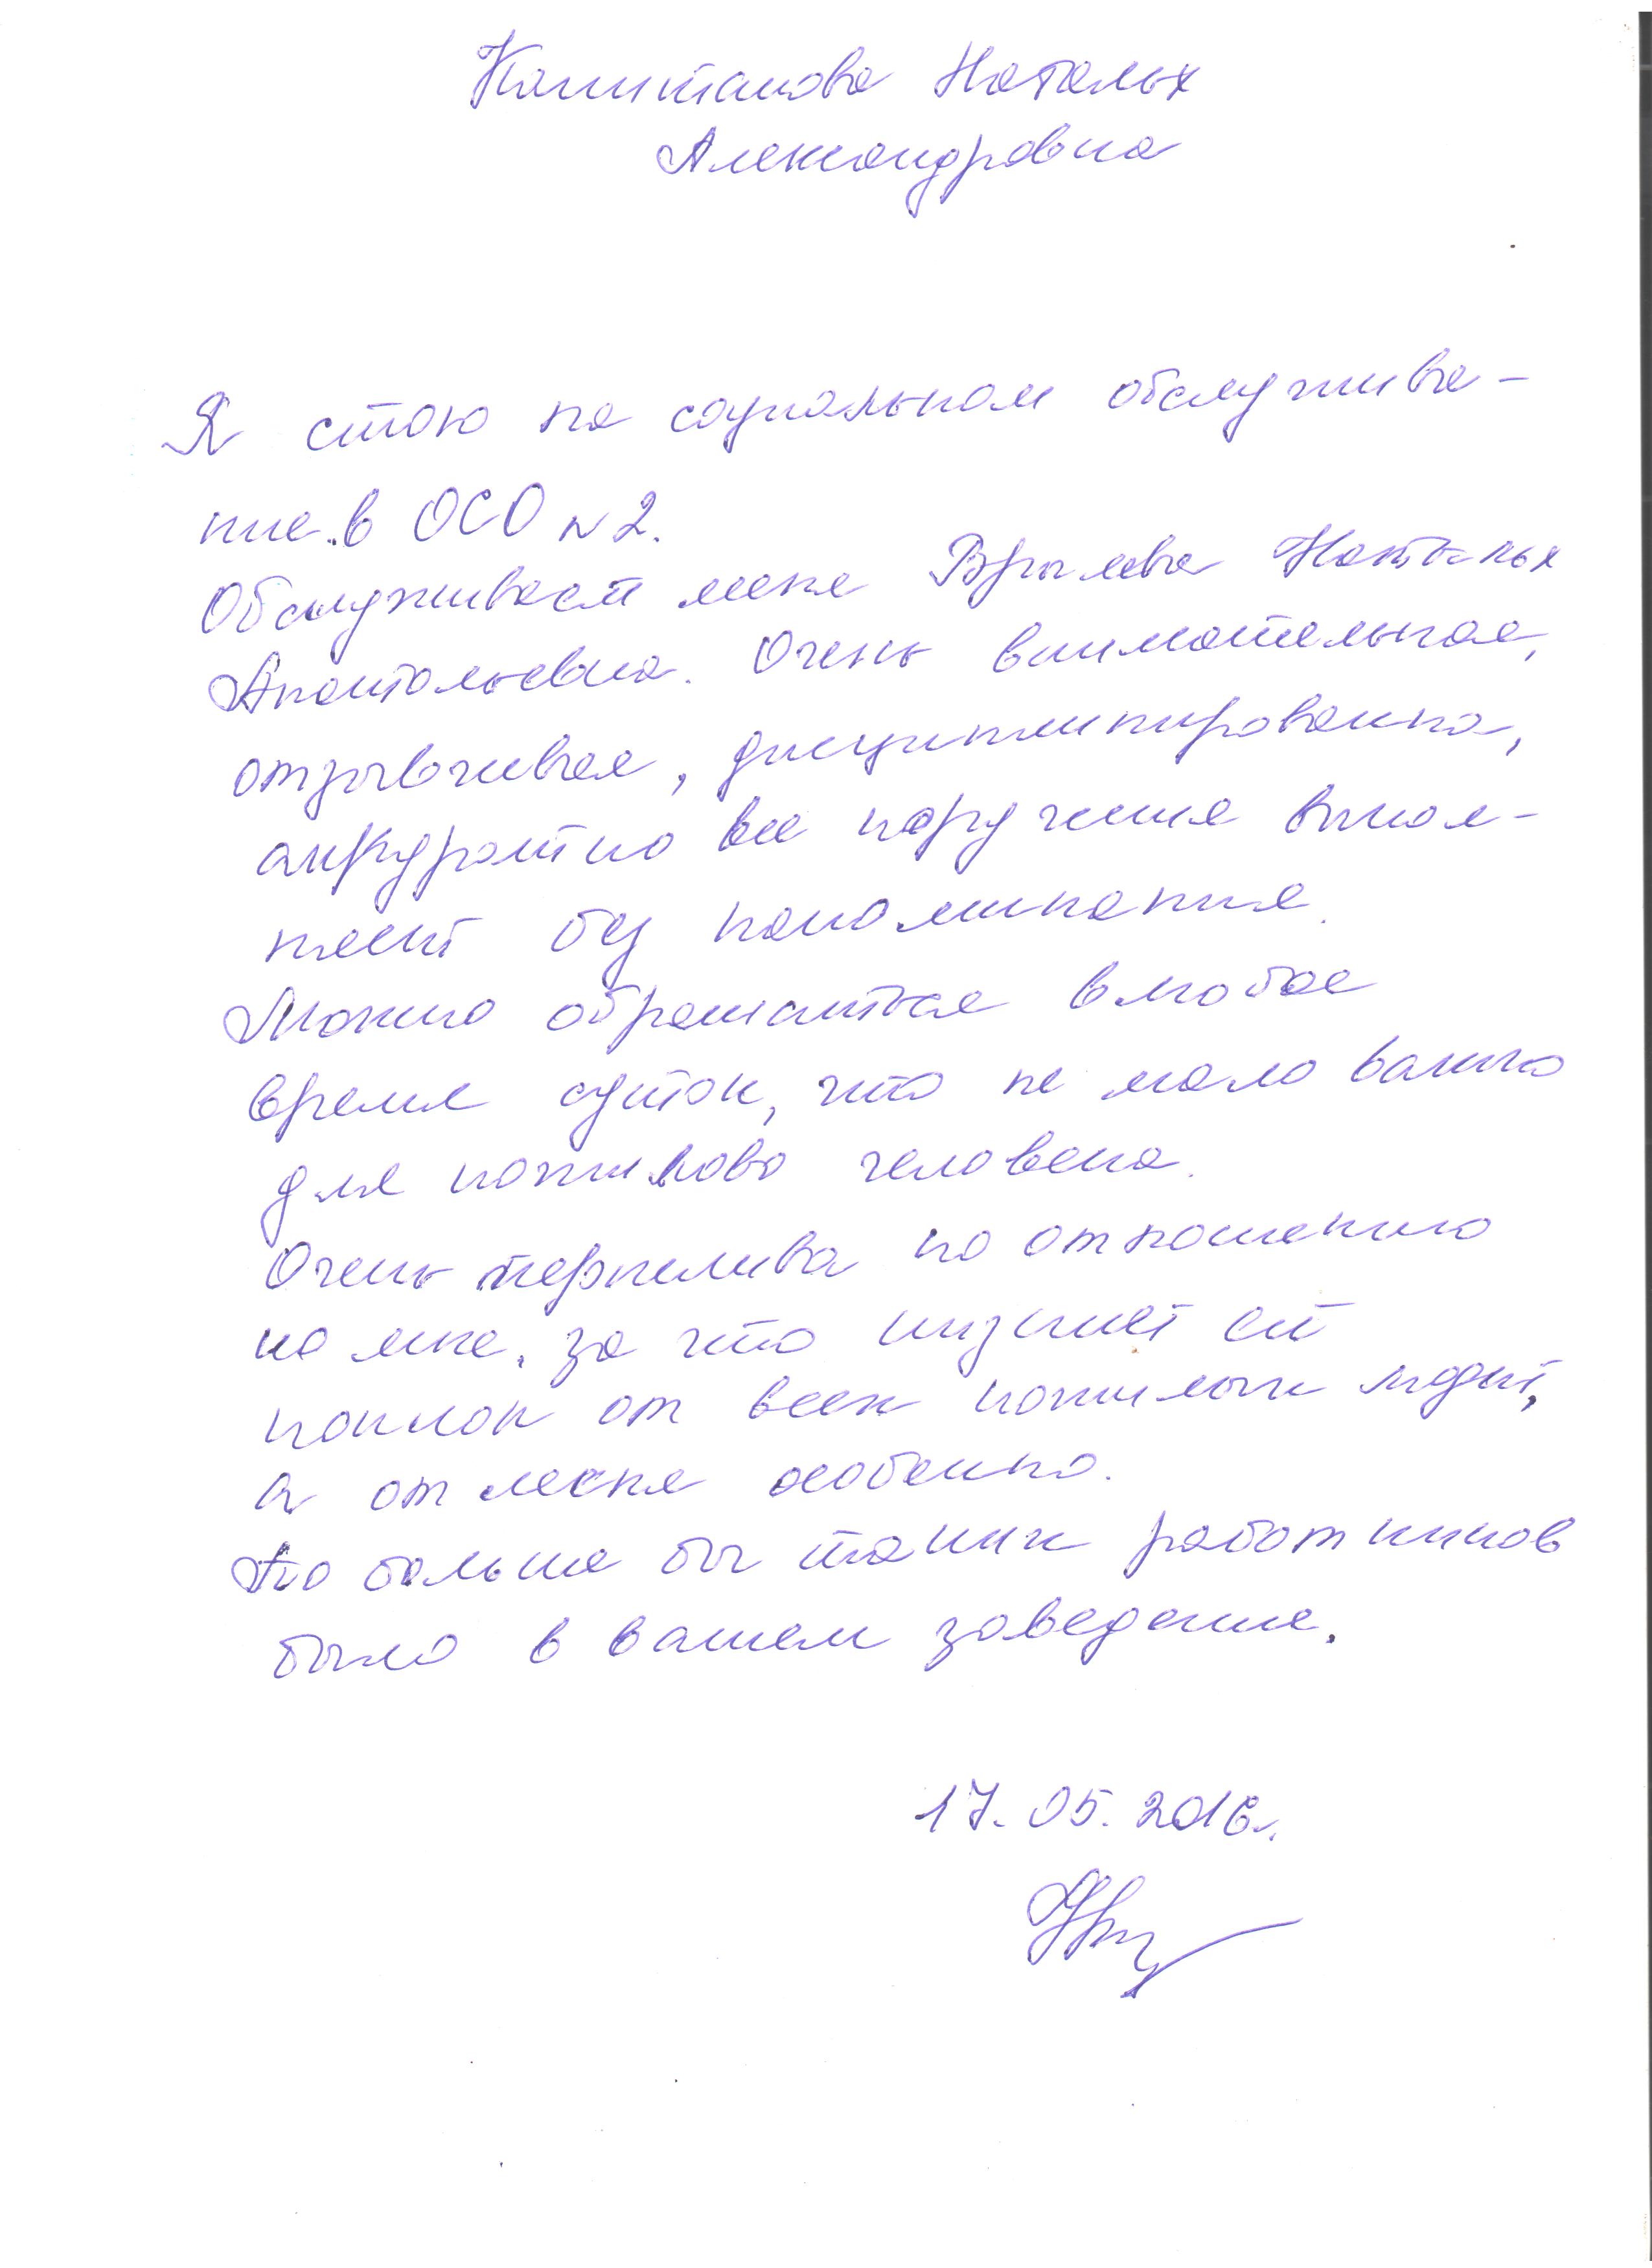 Капитанова Наталья
Александровна
Я стою на социальном обслужива-
ние в ОСО N2.
Обслуживает меня Наталья
Анатольевна. Очень внимательная,
отзывчивая, дисциплинирована,
аккуратно все поручения выпол-
няет без напоминания.
Можно обращаться в любое
время суток, что не мало важно
для пожилово человека.
Очень терпелива по отношению
ко мне, за что низкий ей
поклон от всех пожилых людей,
а от меня особенно.
По больше бы таких работников
было в вашем заведение.
17.05.2016г.